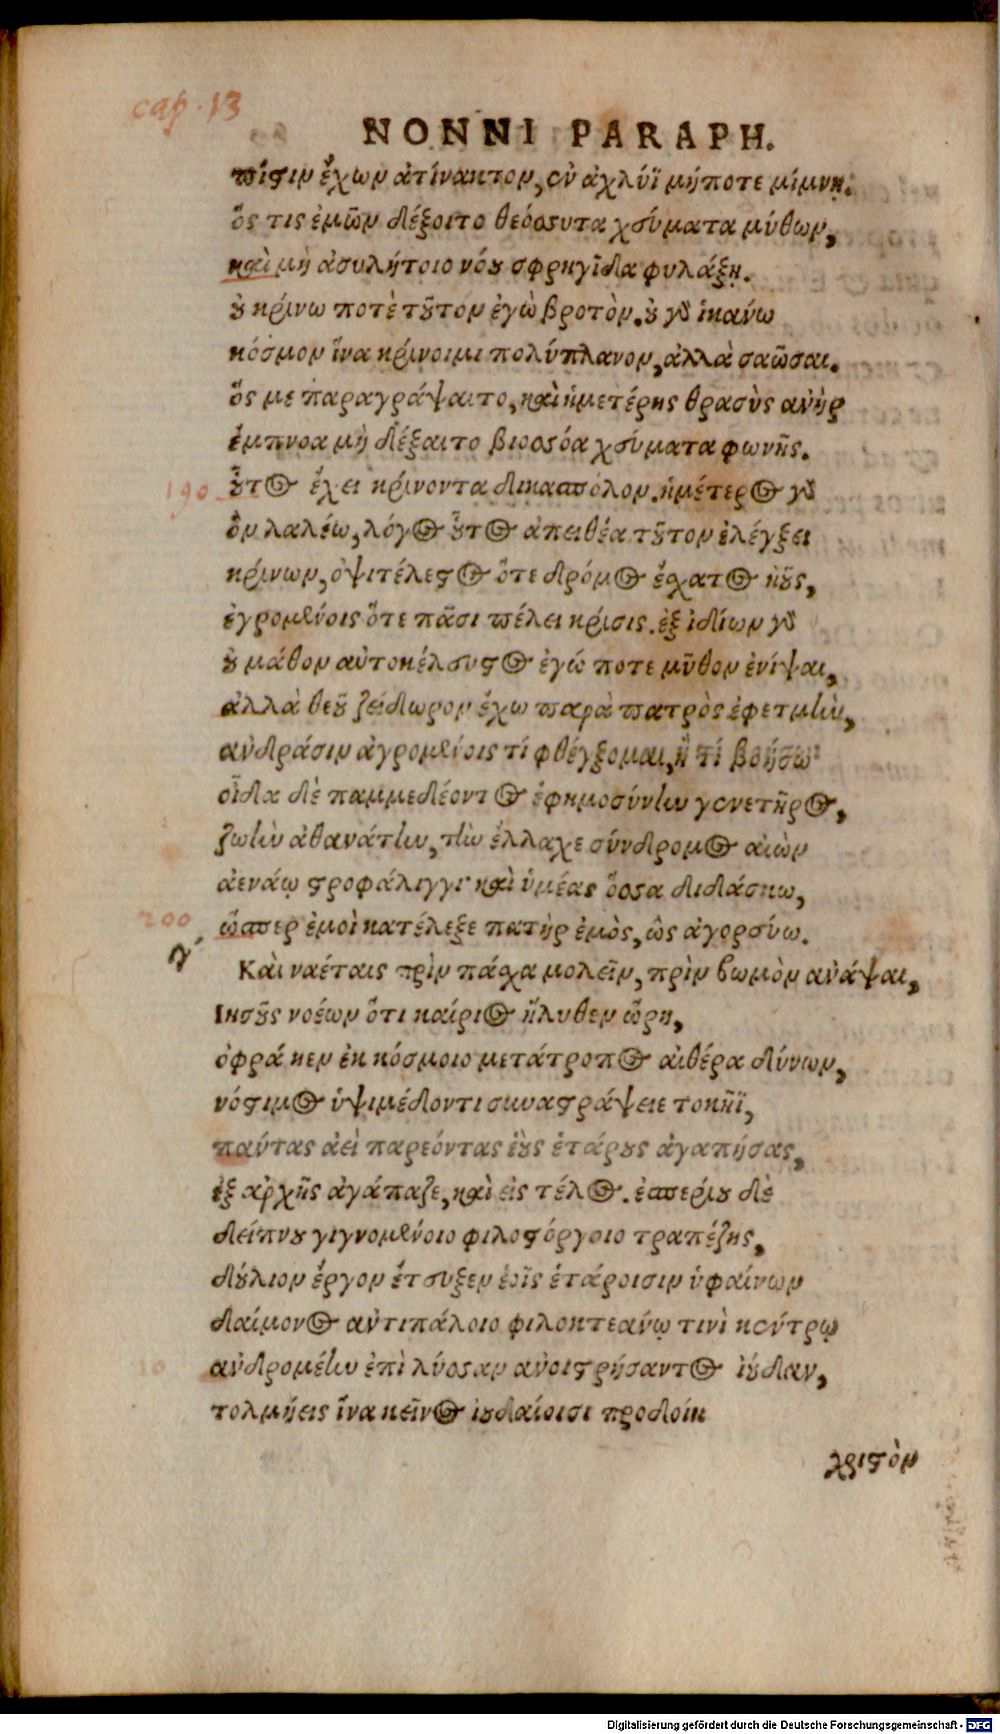 cap. 13
NONNI PARAPH.
πίστιν ἔχων ἀτίνακτον, ἐν ἀχλύϊ μήποτε μίμνῃ.
ὅς τις ἐμῶν δέξοιτο θεόσσυτα χεύματα μύθων,
καὶ μὴ ἀσυλήτοιο νόου σφρηγῖδα φυλάξῃ.
οὐ κρίνω ποτὲ τοῦτον ἐγὼ βροτὸν. οὐ γὰρ ἱκάνω
κόσμον ἵνα κρίνοιμι πολύπλανον, ἀλλὰ σαῶσαι.
ὅς με παραγράψαιτο, καὶ ἡμετέρης θρασὺς ἀνὴρ
ἔμπνοα μὴ δέξαιτο βιοσσόα χεύματα φωνῆς.
190 οὗτος ἔχει κρίνοντα δικασπόλον. ἡμέτερος γὰρ
ὃν λαλέω, λόγος οὗτος ἀπειθέα τοῦτον ἐλέγξει
κρίνων, ὀψιτέλεστος ὅτε δρόμος ἔσχατος ἠοῦς,
ἐγρομένοις ὅτε πᾶσι πέλει κρίσις. ἐξ ἰδίων γὰρ
οὐ μάθον αὐτοκέλευστος ἐγώ ποτε μῦθον ἐνίψαι,
ἀλλὰ θεοῦ ζείδωρον ἔχω παρὰ πατρὸς ἐφετμὴν,
ἀνδράσιν ἀγρομένοις τί φθέγξομαι, ἢ τί βοήσω·
οἶδα δὲ παμμεδέοντος ἐφημοσύνην γενετῆρος,
ζωὴν ἀθανάτην, τὴν ἔλλαχε σύνδρομος αἰὼν
ἀενάῳ στροφάλιγγι· καὶ ὑμέας ὅσσα διδάσκω,
200 ὥσπερ ἐμοὶ κατέλεξε πατὴρ ἐμὸς, ὣς ἀγορεύω.
ν΄ Καὶ ναέταις πρὶν πάσχα μολεῖν, πρὶν βωμὸν ἀνάψαι,
Ἰησοῦς νοέων ὅτι καίριος ἤλυθεν ὥρη,
ὄφρά κεν ἐκ κόσμοιο μετάτροπος αἰθέρα δύνων,
νόστιμος ὑψιμέδοντι συναστράψειε τοκῆϊ,
πάντας ἀεὶ παρεόντας ἑοὺς ἑτάρους ἀγαπήσας,
ἐξ ἀρχῆς ἀγάπαζε, καὶ εἰς τέλος. ἑσπερίου δὲ
δείπνου γιγνομένοιο φιλοστόργοιο τραπέζης,
δούλιον ἔργον ἔτευξεν ἑοῖς ἑτάροισιν ὑφαίνων
δαίμονος ἀντιπάλοιο φιλοκτεάνῳ τινὶ κέντρῳ
10 ἀνδρομέην ἐπὶ λύσσαν ἀνοιστρήσαντος ἰούδαν,
τολμήεις ἵνα κεῖνος ἰουδαίοισι προδοίη
χριστὸν
Digitalisierung gefördert durch die Deutsche Forschungsgemeinschaft - DFG